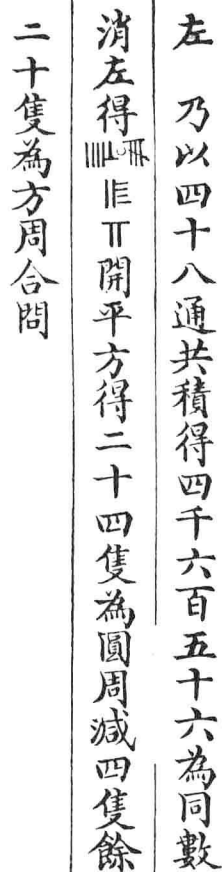 左　乃以四十八通共積得四千六百五十六為同數
消左得開平方得二十四隻為圓周減四隻餘
二十隻為方周合問